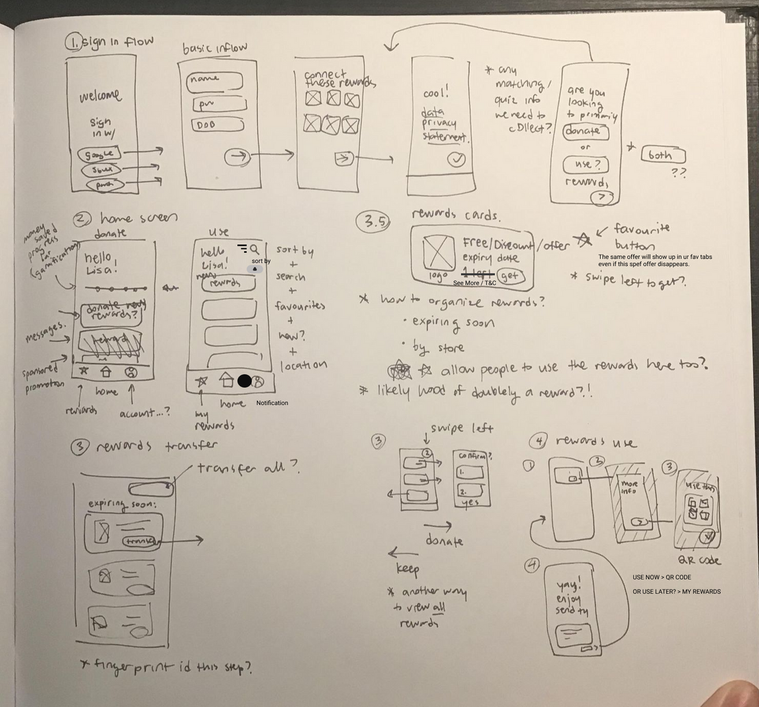 1. sign in flow
welcome
sign
in w/
google
basic inflow
name
pw
DOB
connect
these rewards
cool!
data
privacy
statement.
* any
matching/
quiz info
we need to
collect?
are you
looking
to primarily
donate
or
use?
rewards
* both
??
2 home screen
donate
money saved
progress
bar
(gamification)
hello
Lisa!
donate new
rewards?
reward
messages.
sponsored
promotion
rewards
home
account...?
use
hello
Lisa!
sort by
new
rewards
sort by
+
search
+
favourites
+
new?
+
location
my
rewards
home
Notification
3.5 rewards cards.
logo
Free/Discount/offer
expiry date
1 left
get
See More / T&C
favourite
button
The same offer will show up in ur fav tabs
even if this spef offer disappears.
* swipe left to get?
* how to organize rewards?
• expiring soon
• by store
allow people to use the rewards here too?
* likely hood of doubling a reward?!
3 rewards transfer
transfer all?
expiring soon:
transfer
* fingerprint id this step?
3
swipe left
2
confirm?
1.
2.
yes
donate
keep
* another way
to view all
rewards
4 rewards use
1
2
more
info
3
use this
QR code
4
yay!
enjoy
send ty
USE NOW > QR CODE
OR USE LATER? > MY REWARDS